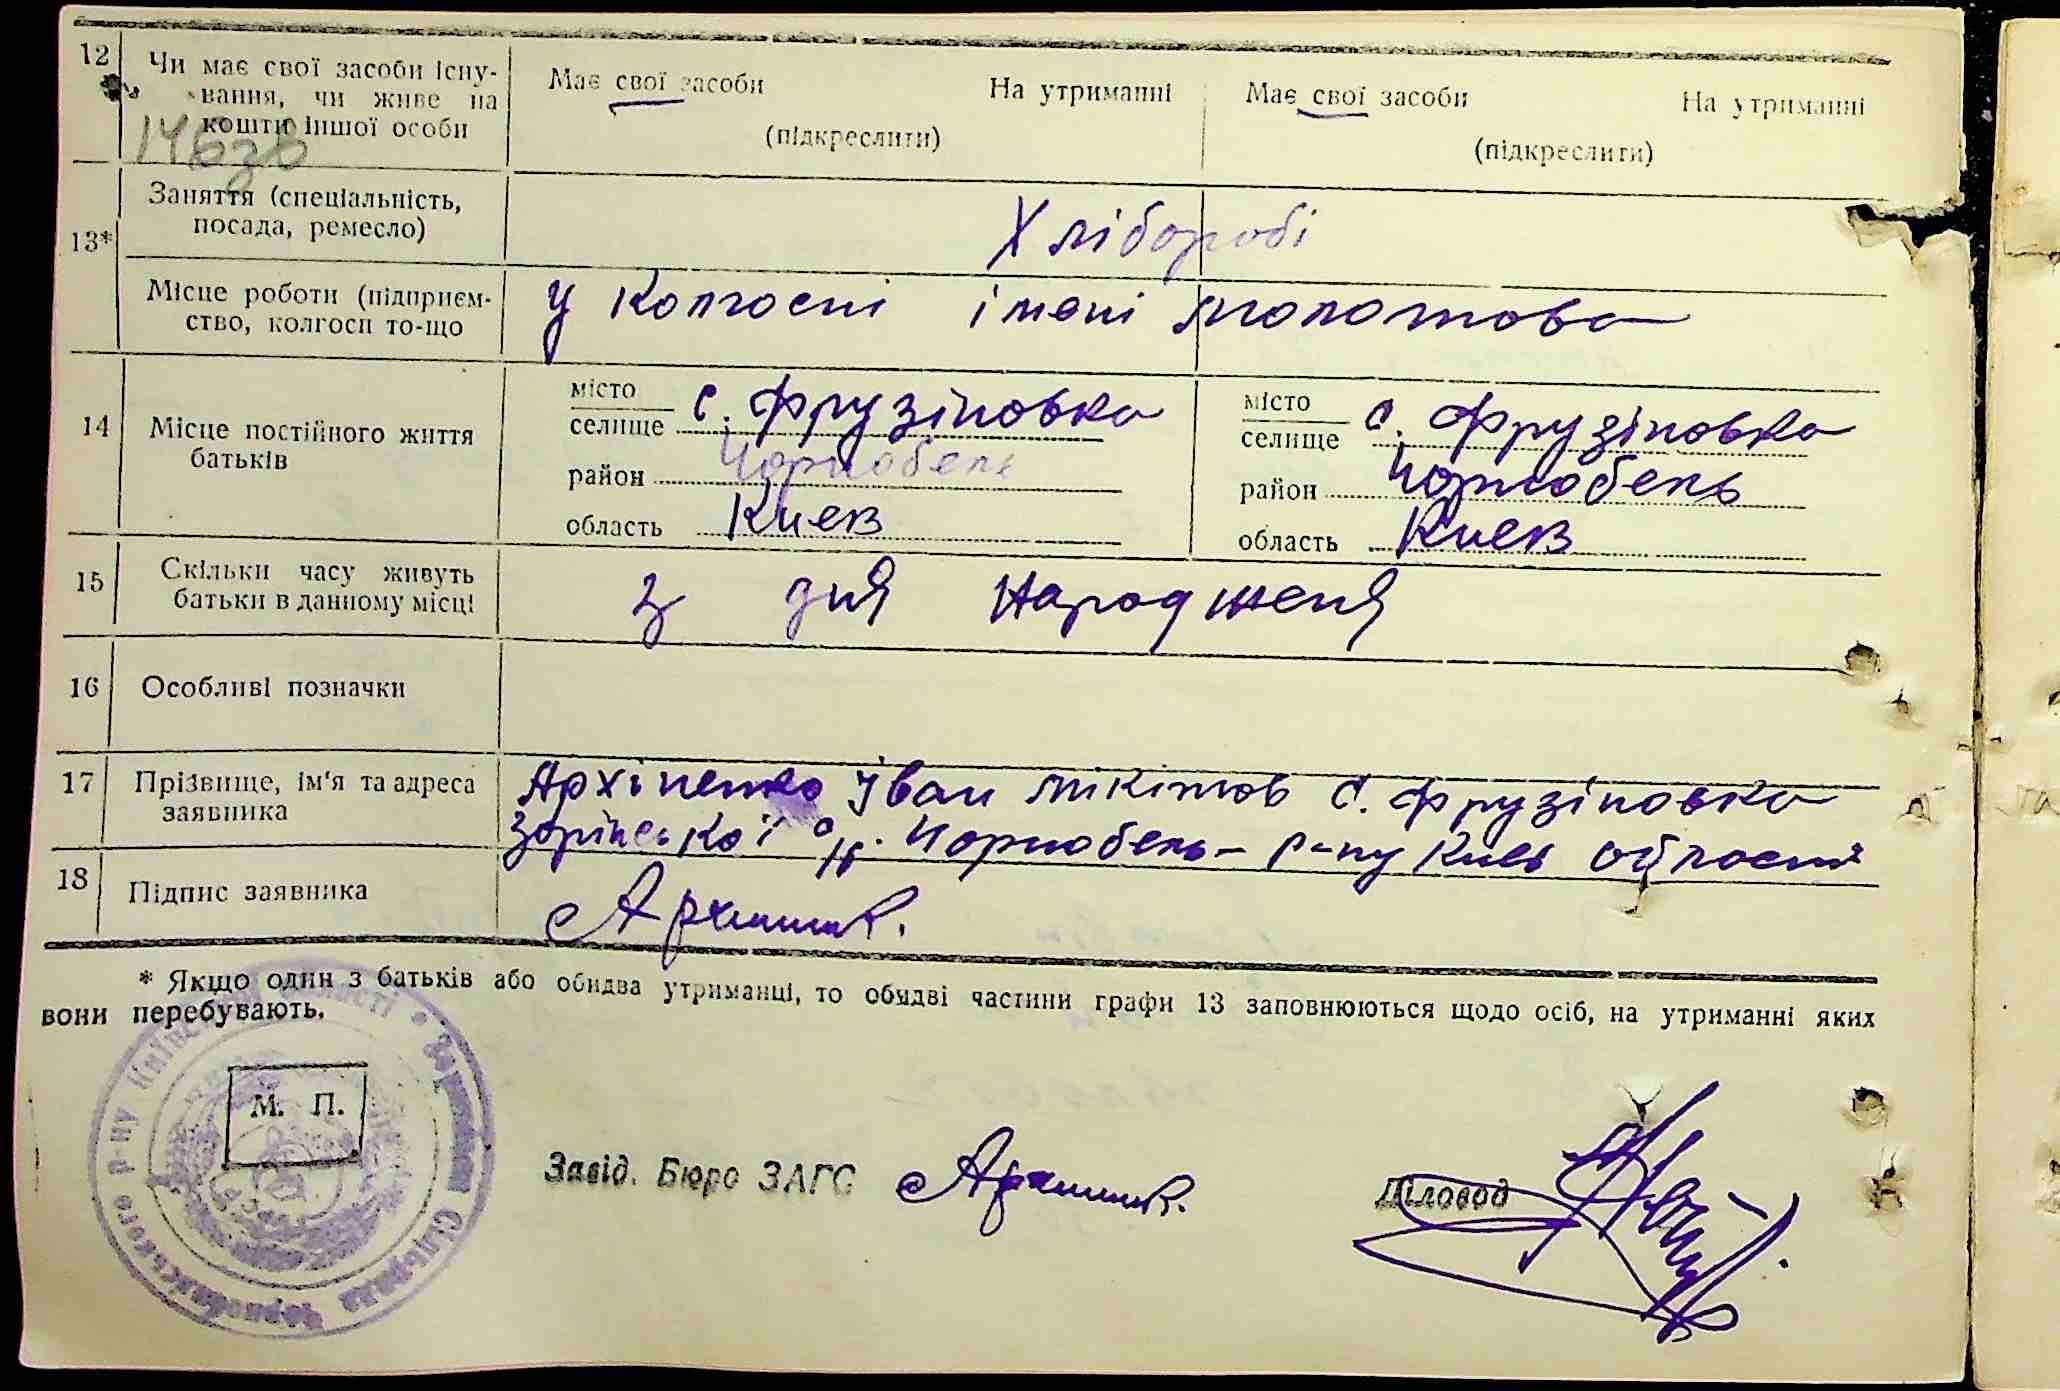 12 Чи має свої засоби існу-
вання, чи живе на
кошти іншої особи
146зв
Має свої засоби На утриманні
(підкреслити)
Має свої засоби На утриманні
(підкреслити)
13* Заняття (спеціальність,
посада, ремесло)
Хлібороби
Місце роботи (підприєм-
ство, колгосп то-що
у колгоспі імені молотова
14 Місце постійного життя
батьків
місто
селище с. Фрузіновка
район Чорнобель
область Киев
місто
селище с. Фрузіновка
район Чорнобель
область Киев
15 Скільки часу живуть
батьки в данному місці
З дня народженя
16 Особливі позначки
17 Прізвище, ім'я та адреса
заявника
Архіпенко Іван микітов с. Фрузіновка
Зорінської с/р. Чорнобель-р-ну Киев области
18 Підпис заявника
* Якщо один з батьків або обидва утриманці, то обидві частини графи 13 заповнюються щодо осіб, на утриманні яких
вони перебувають.
М. П.
Чорнобильського р-ну Київської області • Зорінська Сіль-рада
Завід. Бюро ЗАГС
Діловод